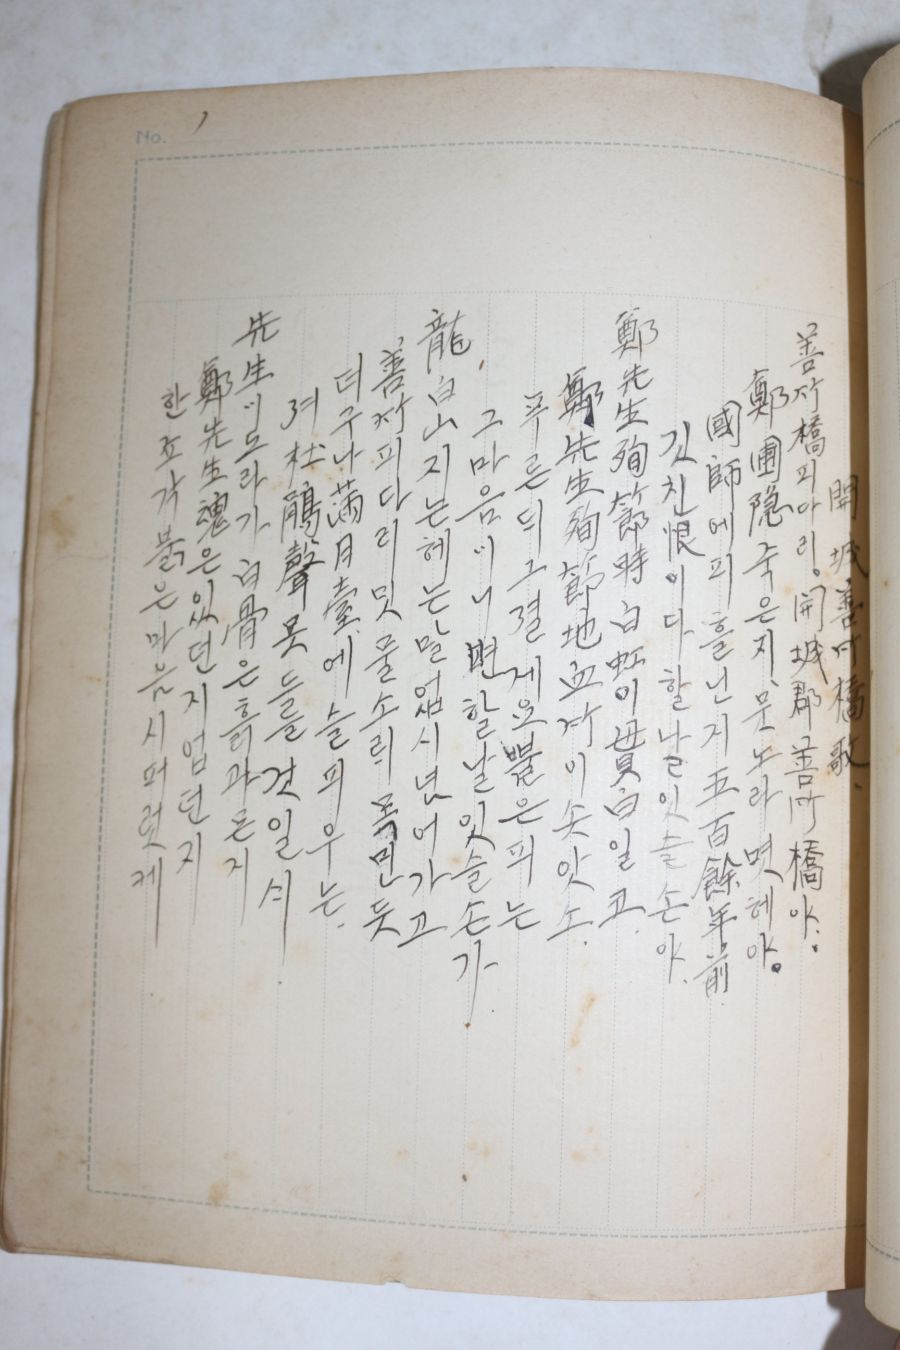 No. 1
開城善竹橋歌.
善竹橋피다리。開城郡善竹橋야.
鄭圃隱죽은지.뭇노라 몃헤야。
國師에피흘닌지五百餘年前
깃친恨이다할날잇슬손야.
鄭先生殉節時白虹이貫白일고.
鄭先生殉節地血쥭이솟앗소.
푸른듸그결게요붉은피는
그마음이니변할날잇슬손가
龍峀山지는헤는말업시넘어가고
善竹피다리밋물소릐목민듯
더구나滿月臺에슬피우는.
저杜鵑聲못들을것일식
先生이도라가白骨은흙과든지
鄭先生魂은잇던지업던지
한조각붉은마음시퍼럿케